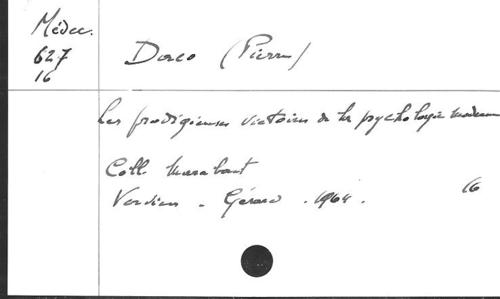 Médec.
627
16
Daco (Pierre)
Les prodigieuses victoires de la psychologie moderne
Coll. Marabout
Verviers - Gérard - 1964.
16